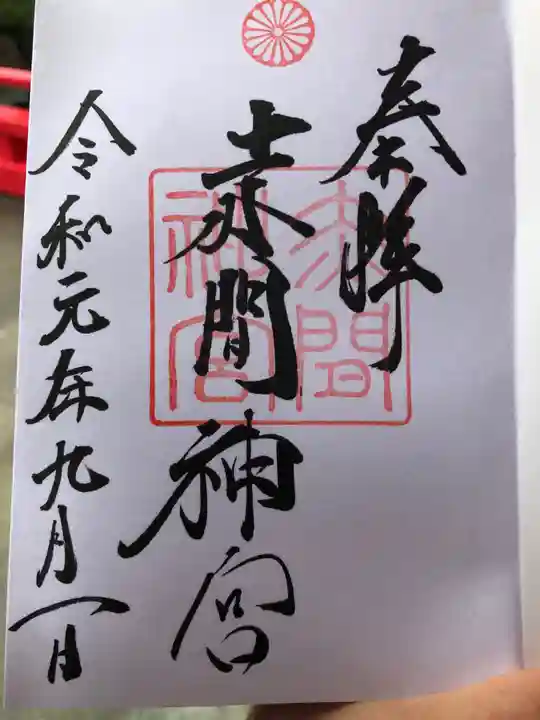 奉拝
赤間神宮
令和元年九月八日
赤間
神宮